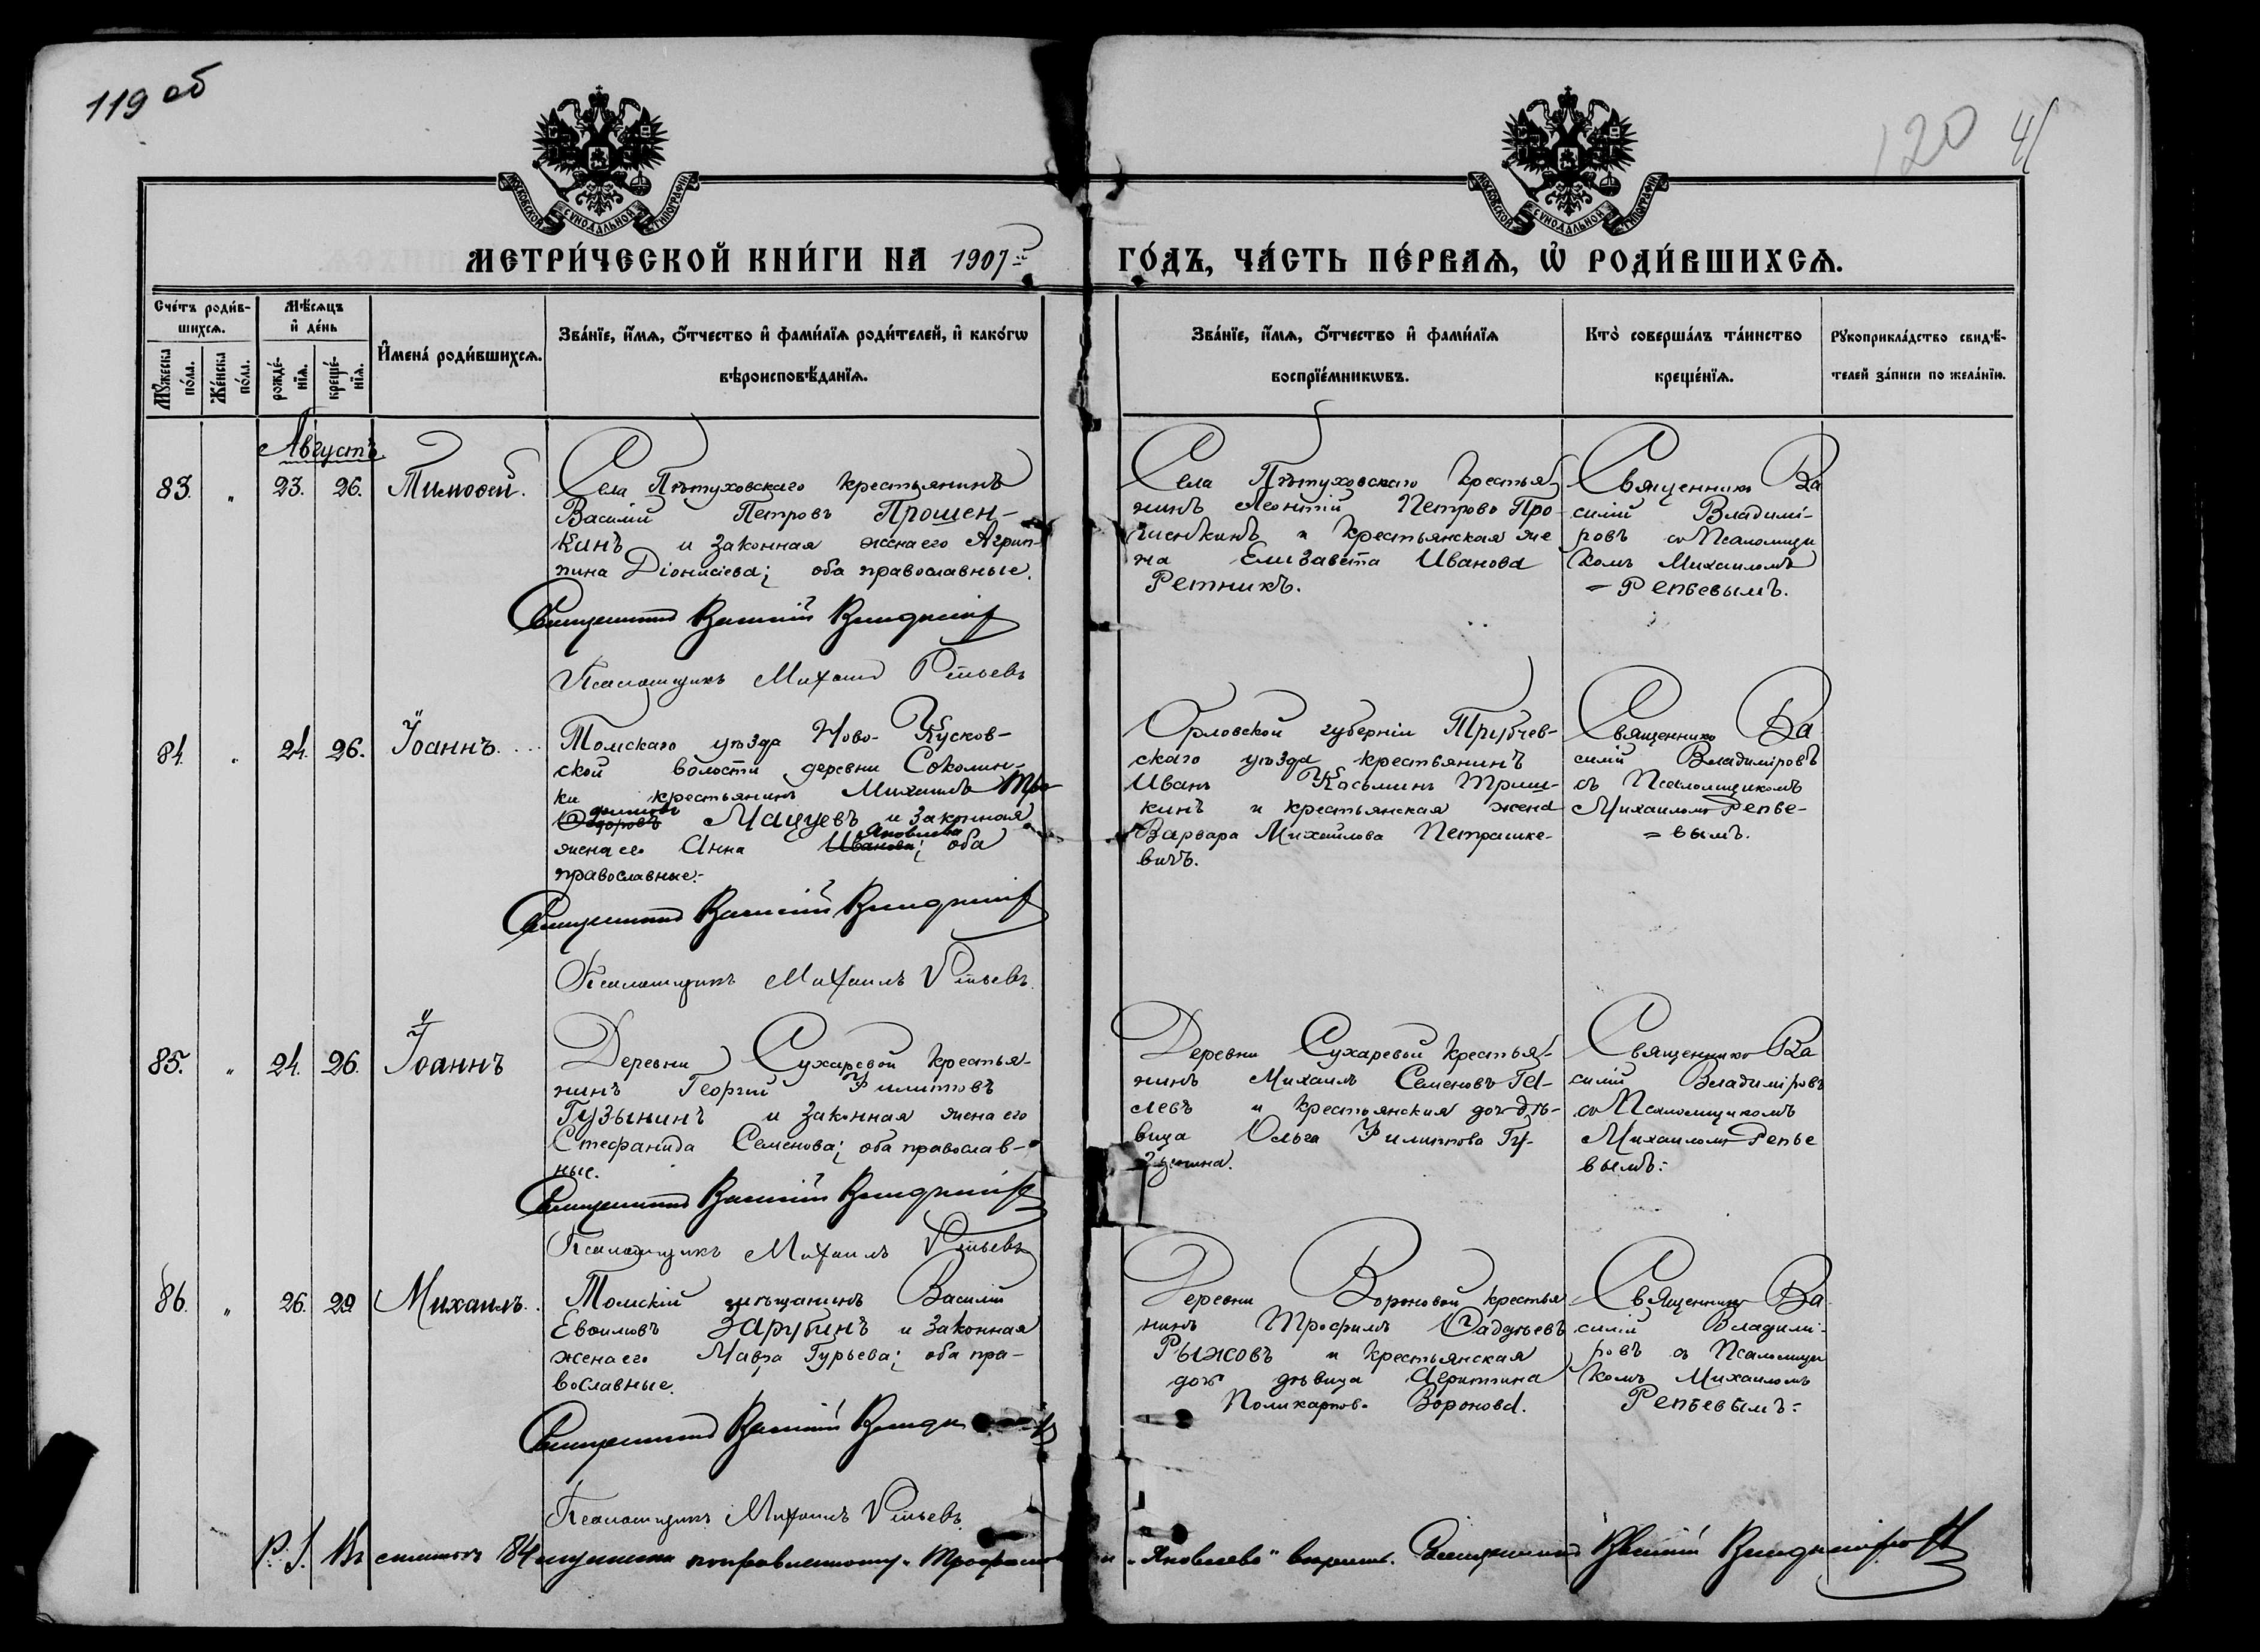 119 об
120 41
МОСКОВСКОЙ СѴНОДАЛЬНОЙ ТИПОГРАФІИ
МОСКОВСКОЙ СѴНОДАЛЬНОЙ ТИПОГРАФІИ
МЕТРИ́ЧЕСКОЙ КНИ́ГИ НА 1907 ГО́ДЪ, ЧА́СТЬ ПЕ́РВАѦ, Ѡ҆ РОДИ́ВШИХСѦ.
Сче́тъ роди́в-
шихсѧ.
Мꙋ́жеска по́ла.
Же́нска по́ла.
Мѣ́сѧцъ
и҆ де́нь
рожде́-
нїѧ.
креще́-
нїѧ.
И҆мена̀ роди́вшихсѧ.
Зва́нїе, и҆́мѧ, ѻ҆́тчество и҆ фами́лїѧ роди́телей, и҆ како́гѡ
вѣроисповѣ́данїѧ.
Зва́нїе, и҆́мѧ, ѻ҆́тчество и҆ фами́лїѧ
воспрїе́мникѡвъ.
Кто̀ соверша́лъ та́инство
креще́нїѧ.
Рꙋкоприкла́дство свидѣ́-
телей за́писи по жела́нїю.
Августъ
83. " 23. 26. Тимоѳей.
Села Пѣтуховскаго крестьянинъ
Василій Петровъ Прошен-
кинъ и законная жена его Агрип-
пина Діонисіева; оба православные.
Священникъ Василій Владиміровъ
Псаломщикъ Михаилъ Репьевъ
Села Пѣтуховскаго крестья
нинъ Леонтій Петровъ Про
шенкинъ и крестьянская же
на Елизавета Иванова
Ретникъ.
Священникъ Ва
силій Владимі-
ровъ съ Псаломщи
комъ Михаиломъ
Репьевымъ.
84. " 24. 26. Іоаннъ.
Томскаго уѣзда Ново-Кусков-
ской волости деревни Соколин-
ки крестьянинъ Михаилъ Тро
фимовъ
Ѳедоровъ Мацуевъ и законная
Яковлева
жена его Анна Иванова; оба
православные.
Священникъ Василій Владиміровъ
Псаломщикъ Михаилъ Репьевъ.
Орловской губерніи Трубчев-
скаго уѣзда крестьянинъ
Иванъ Косьминъ Триш-
кинъ и крестьянская жена
Варвара Михайлова Петрашке-
вичъ.
Священникъ Ва
силій Владиміровъ
съ Псаломщикомъ
Михаиломъ Репье-
вымъ.
85. " 24. 26. Іоаннъ
Деревни Сухаревой крестья-
нинъ Георгій Филипповъ
Гузынинъ и законная жена его
Стефанида Семенова; оба православ-
ные.
Священникъ Василій Владиміровъ
Псаломщикъ Михаилъ Репьевъ
Деревни Сухаревой крестья-
нинъ Михаилъ Семеновъ
и крестьянская дочь дѣ-
вица Ольга Филиппова Гу-
Священникъ Ва
силій Владиміровъ
съ Псаломщикомъ
Михаиломъ Репье
вымъ.
86. " 26. 29 Михаилъ.
Томскій мѣщанинъ Василій
Евѳимовъ Зарубинъ и законная
жена его Мавра Гурьева; оба пра-
вославные.
Священникъ Василій
Псаломщикъ Михаилъ Репьевъ.
Деревни Вороновой крестья
нинъ Трофимъ Ѳадѣевъ
Рыжовъ и крестьянская
дочь дѣвица
Поликарпова Воронова.
Священникъ Ва
силій Владимі-
ровъ съ Псаломщи
комъ Михаиломъ
Репьевымъ.
P. S. Въ 84 поправленному „Трофимовъ и „Яковлева" вѣрить. Священникъ Василій Владиміровъ